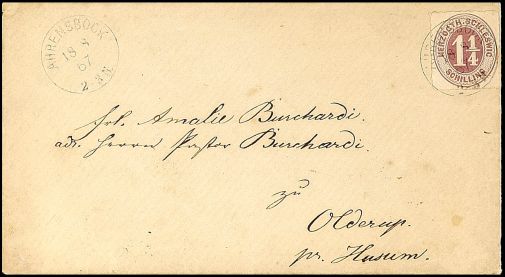 AHRENSBÖCK
18 3
67
2 - 3 N
HERZOGTH. SCHLESWIG
1¼
SCHILLING
Frl. Amalie Burchardi.
adr. Herrn Pastor Burchardi.
zu
Olderup.
pr. Husum.